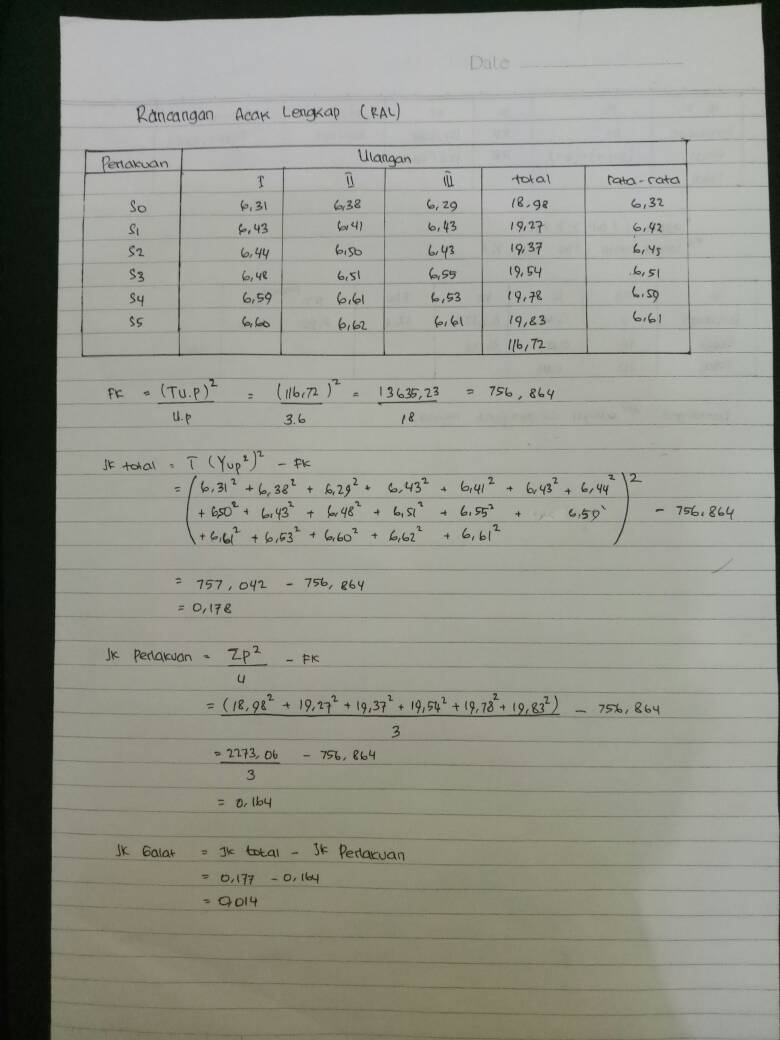 Date
Rancangan Acak Lengkap (RAL)
Perlakuan Ulangan
I II III total rata-rata
S0 6,31 6,38 6,29 18,98 6,32
S1 6,43 6,41 6,43 19,27 6,42
S2 6,44 6,50 6,43 19,37 6,45
S3 6,48 6,51 6,55 19,54 6,51
S4 6,59 6,61 6,53 19,78 6,59
S5 6,60 6,62 6,61 19,83 6,61
116,72
FK = (TU.P)² / U.P = (116,72)² / 3.6 = 13635,23 / 18 = 756,864
JK total = T (Yup²)² - FK
= (6,31² + 6,38² + 6,29² + 6,43² + 6,41² + 6,43² + 6,44²
+ 6,50² + 6,43² + 6,48² + 6,51² + 6,55² + 6,59²
+ 6,61² + 6,53² + 6,60² + 6,62² + 6,61²)² - 756,864
= 757,042 - 756,864
= 0,178
JK Perlakuan = Σp² / u - FK
= (18,98² + 19,27² + 19,37² + 19,54² + 19,78² + 19,83²) / 3 - 756,864
= 2273,06 / 3 - 756,864
= 0,164
JK Galat = JK total - JK Perlakuan
= 0,177 - 0,164
= 0,014